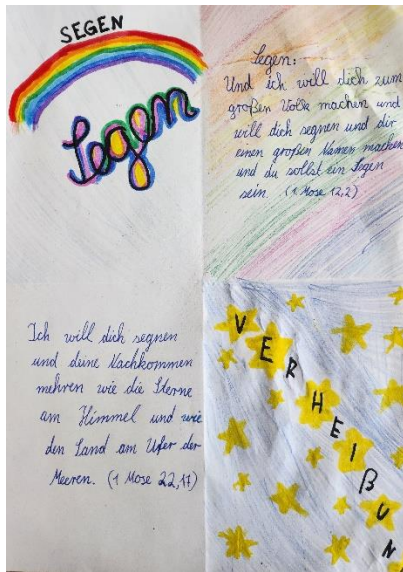 SEGEN
Segen
Segen:
Und ich will dich zum
großen Volk machen und
will dich segnen und dir
einen großen Namen machen
und du sollst ein Segen
sein. (1 Mose 12,2)
Ich will dich segnen
und deine Nachkommen
mehren wie die Sterne
am Himmel und wie
den Sand am Ufer der
Meeren. (1 Mose 22,17)
VERHEIßUN